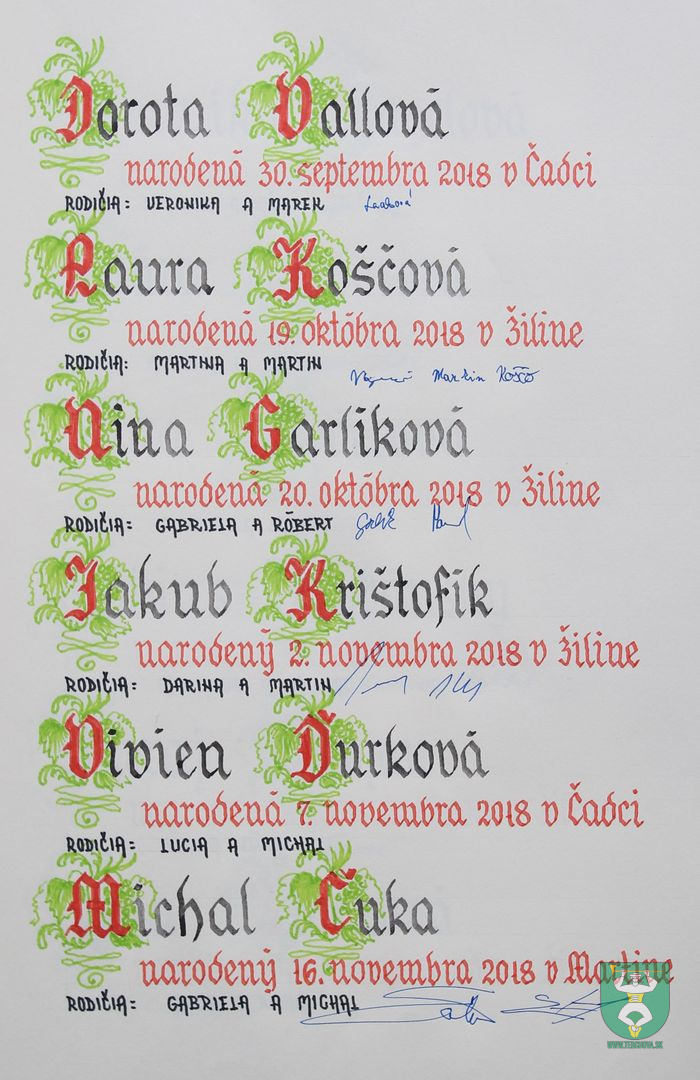 Dorota Vallová
narodená 30. septembra 2018 v Čadci
RODIČIA: VERONIKA A MAREK
Laura Koščová
narodená 19. októbra 2018 v Žiline
RODIČIA: MARTINA A MARTIN
Martin Koščo
Nina Garlíková
narodená 20. októbra 2018 v Žiline
RODIČIA: GABRIELA A RÓBERT
Jakub Krištofík
narodený 2. novembra 2018 v Žiline
RODIČIA: DARINA A MARTIN
Vivien Ďurková
narodená 7. novembra 2018 v Čadci
RODIČIA: LUCIA A MICHAL
Michal Cuka
narodený 16. novembra 2018 v Martine
RODIČIA: GABRIELA A MICHAL
WWW.TERCHOVA.SK